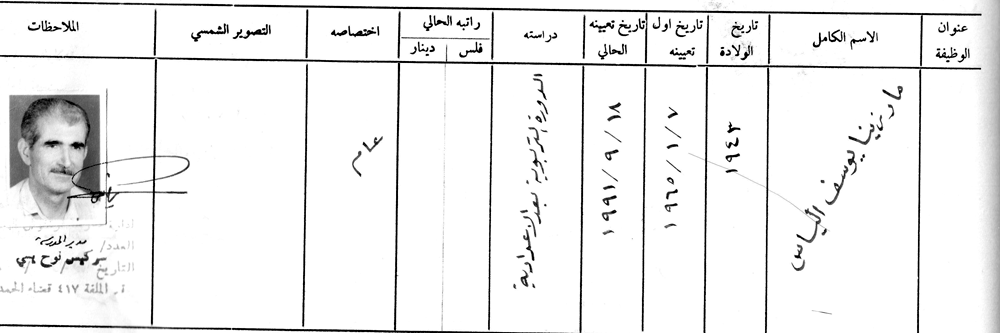 عنوان الوظيفة
الاسم الكامل
تاريخ الولادة
تاريخ اول تعيينه
تاريخ تعيينه الحالي
دراسته
راتبه الحالي
فلس
دينار
اختصاصه
التصوير الشمسي
الملاحظات
يوسف الياس
١٩٤٣
١٩٦٥/١/٧
١٩٩١/٩/١٨
الدورة التربوية بعد الاعدادية
عام
مدير المدرسة
سركيس نوح
العدد/
التاريخ / /
الملفة ٤١٧ قضاء